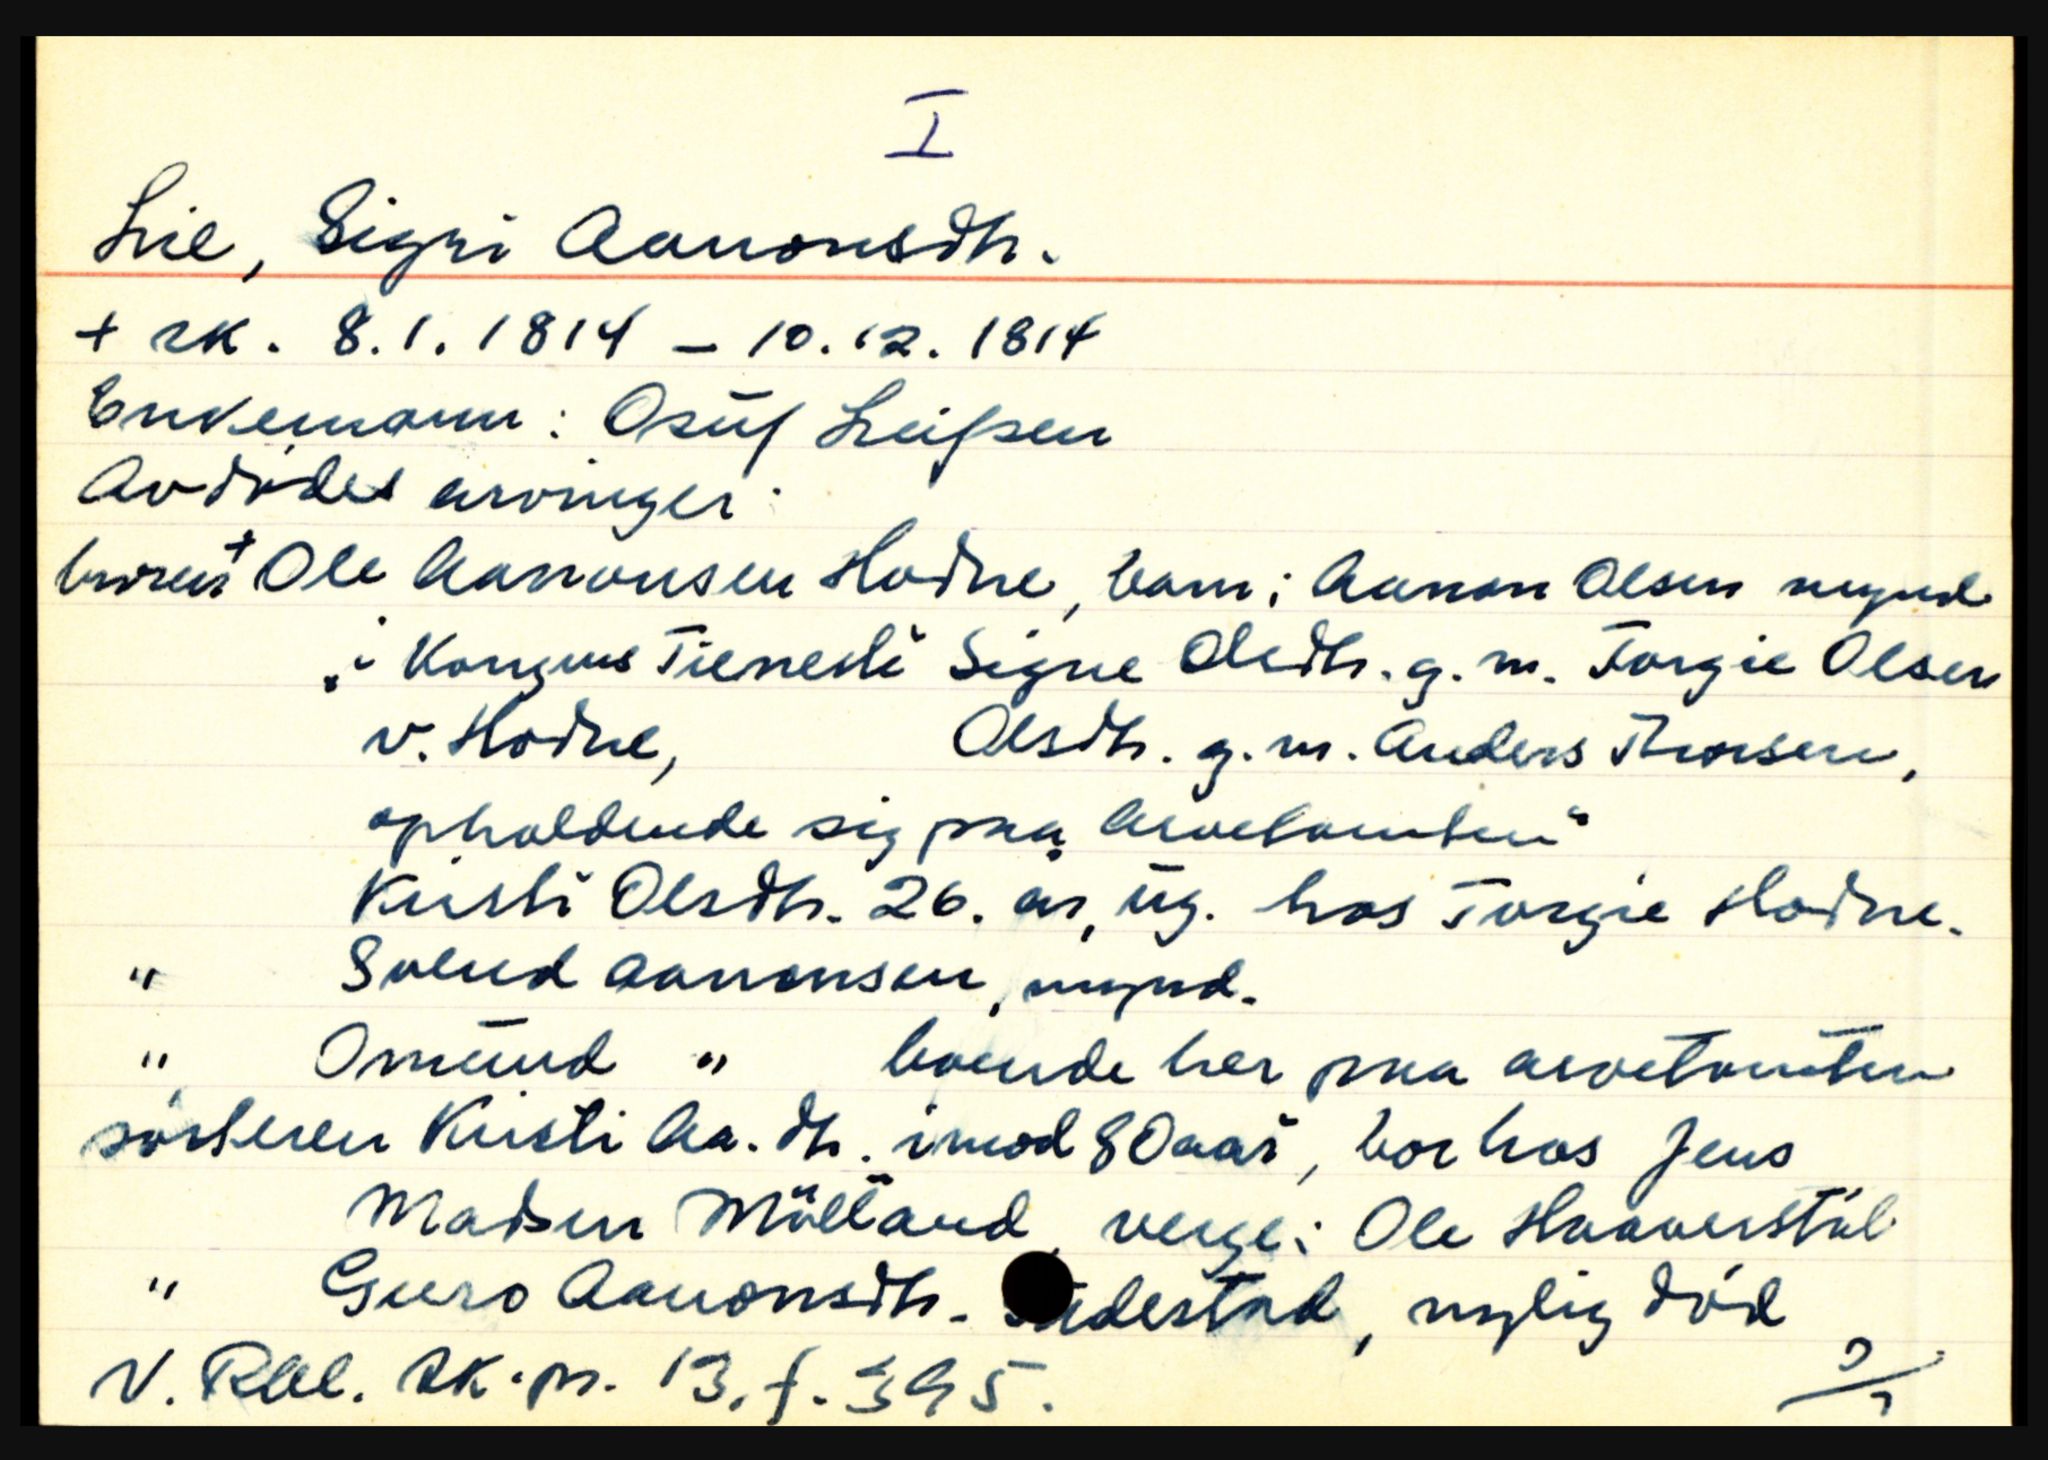 I
Lie, Sigri Aanonsdtr.
+ sk. 8.1.1814 – 10.12.1814
Enkemann: Osuf Leifsen
Avdødes arvinger:
broren + Ole Aanonsen Hodne, barn: Aanon Olsen mynd
"i Kongens Tieneste Signe Olsdtr. g. m. Torgie Olsen
v. Hodne, Olsdtr. g. m. Anders Thorsen,
opholdende sig paa Arvetomten"
Kirsti Olsdtr. 26. år, ug. hos Torgie Hodne.
" Salved Aanonsen, mynd.
" Omund " boende her paa arvetomten
søsteren Kirsti Aa. dtr. imod 80 aar, bor hos Jens
Madsen Mölland, verge: Ole Haaverstøl
" Guro Aanonsdtr. , nylig død
V. Rbl. sk. pr. 13. f. 395.